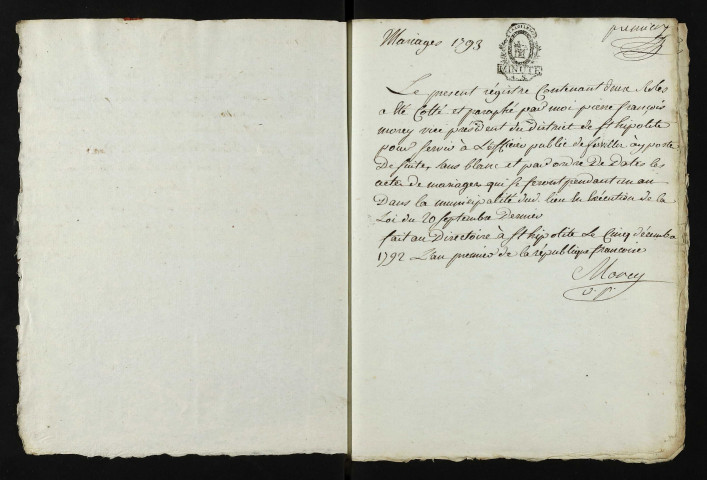 Mariages 1793
premier
MINUTE
Le present régistre Contenant deux Roles
a été Cotté et paraphé par moi pierre françois
morey vice président du district de st hipolite
pour servir à L'officier public de à y porter
De suite, sans blanc et par ordre De Dates les
actes de mariages qui se feront pendant un an
Dans la municipalité dud. lieu En Exécution de la
Loi du 20 septembre Dernier
fait au Directoire à st hipolite Le Cinq décembre
1792 L'an premier de la république francoise
Morey
v. p.